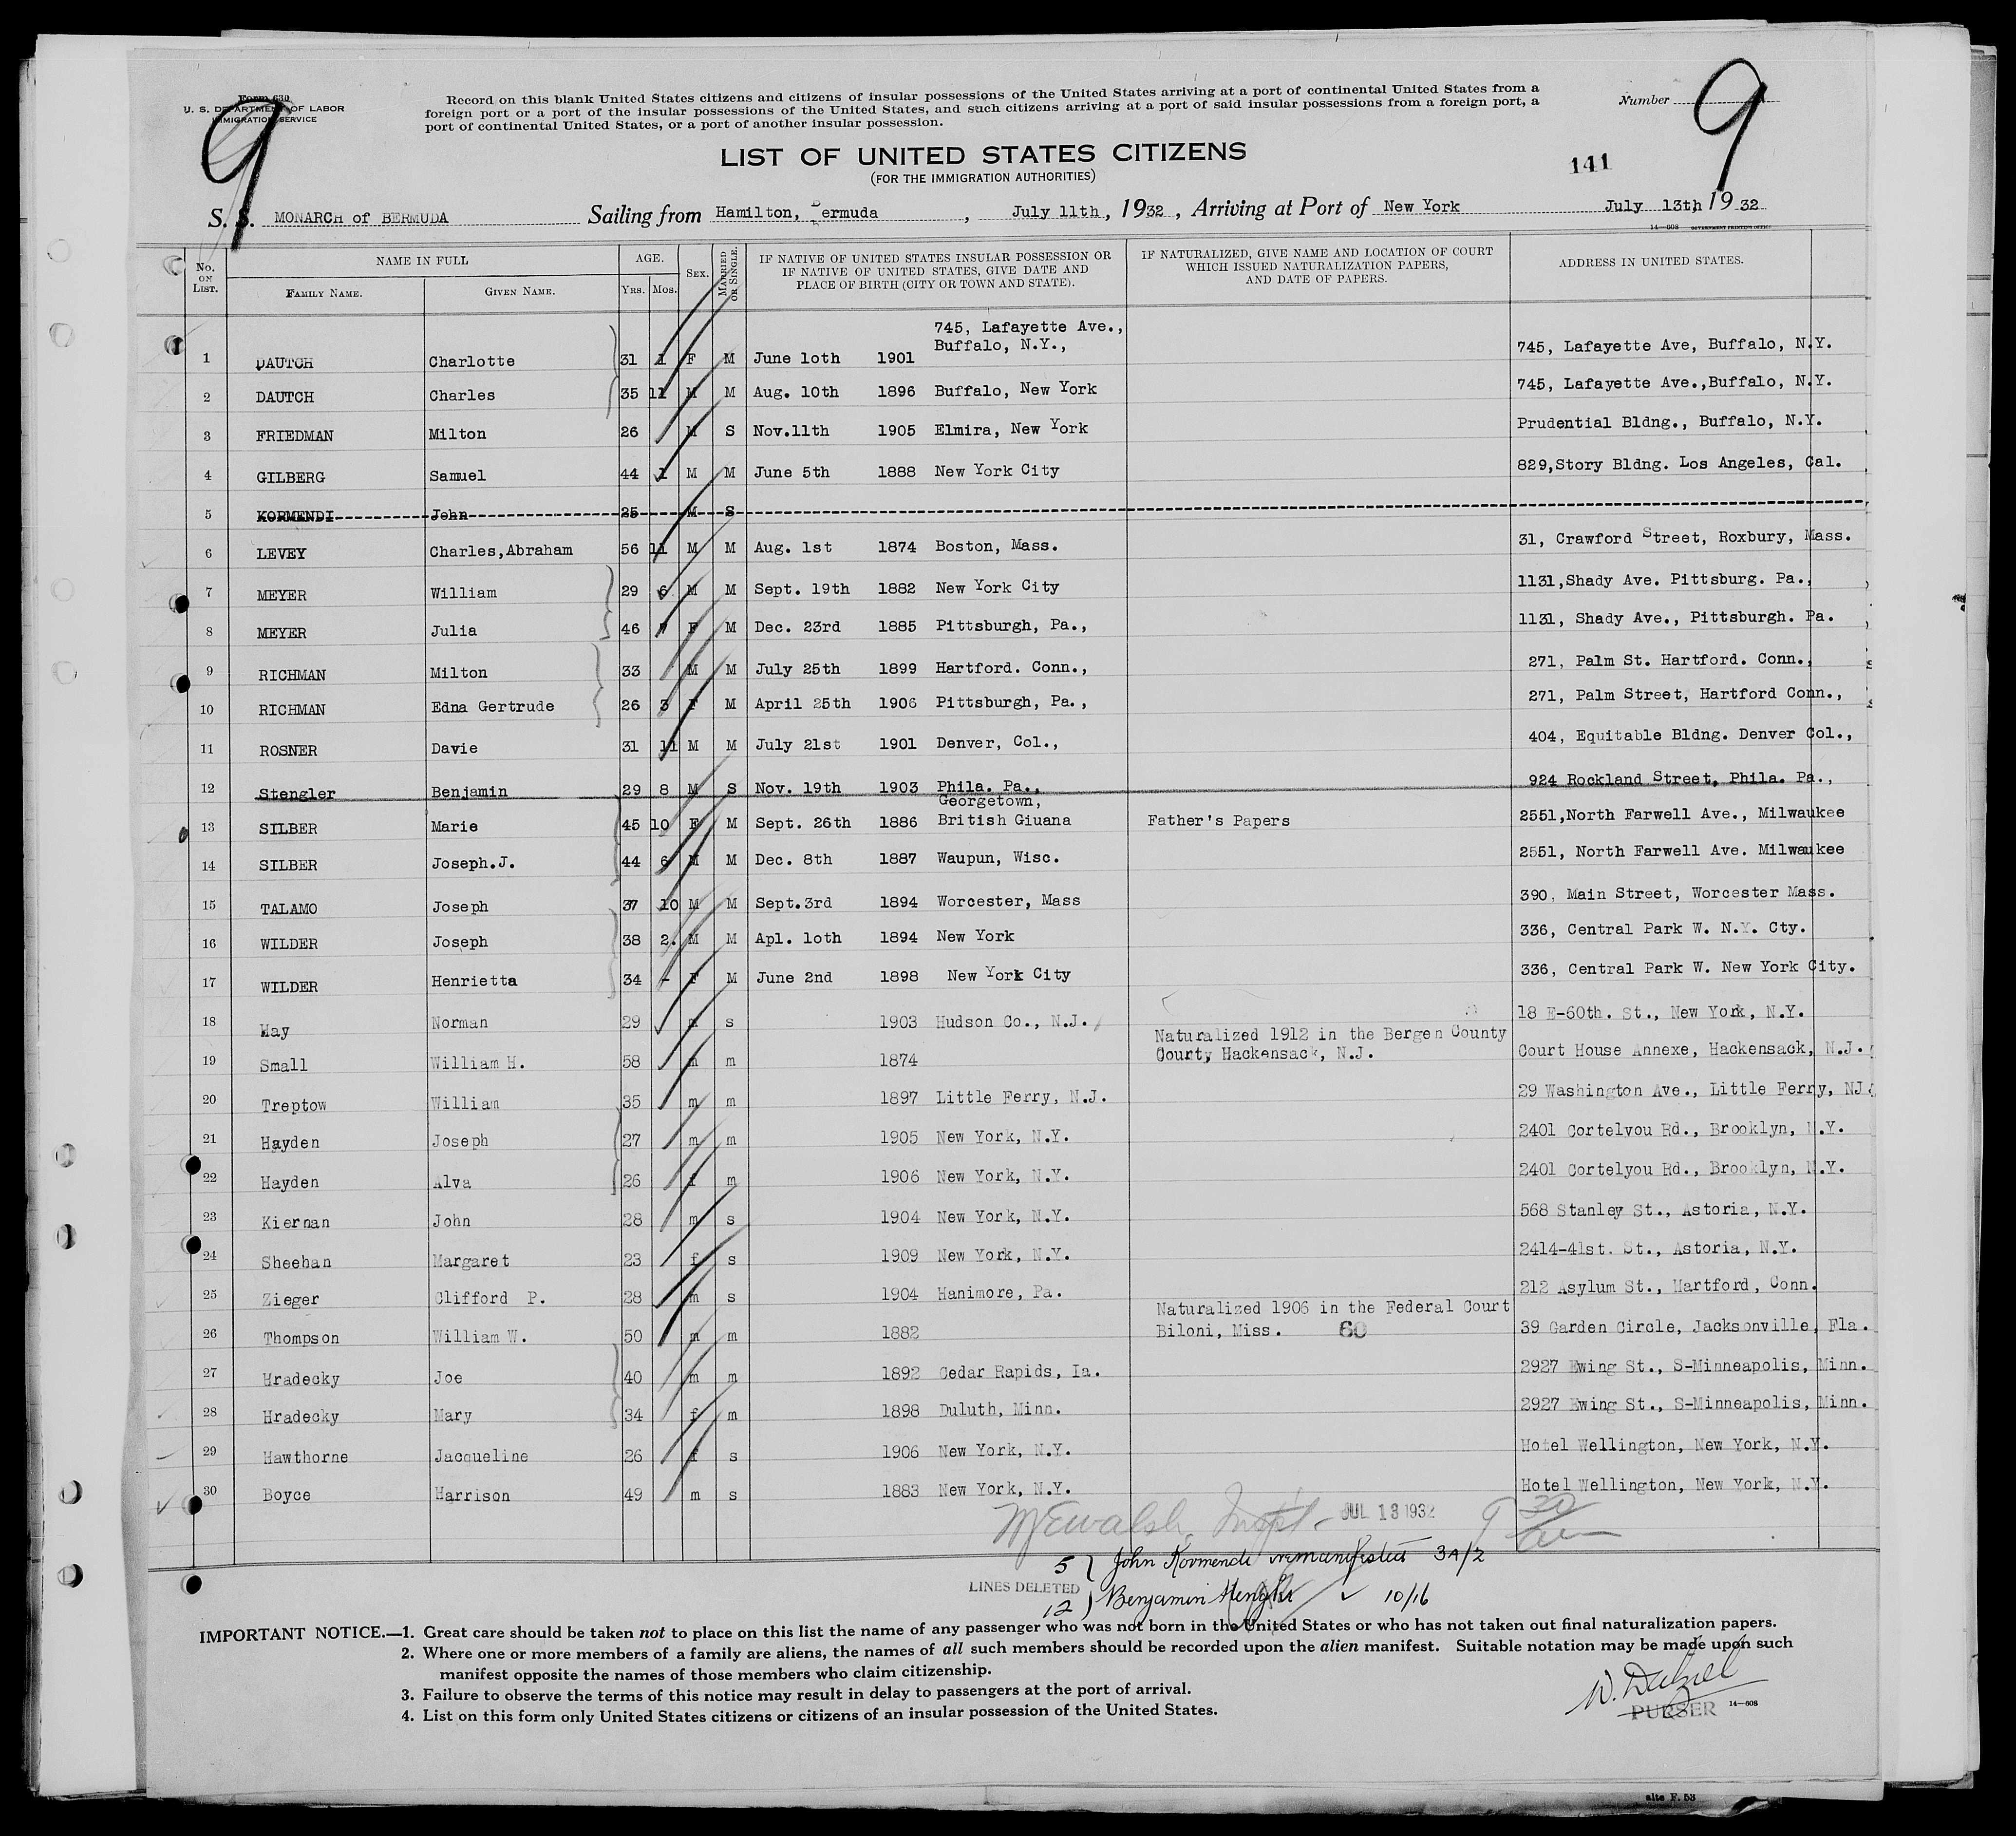 Form 630
U. S. DEPARTMENT OF LABOR
IMMIGRATION SERVICE
9
Record on this blank United States citizens and citizens of insular possessions of the United States arriving at a port of continental United States from a
foreign port or a port of the insular possessions of the United States, and such citizens arriving at a port of said insular possessions from a foreign port, a
port of continental United States, or a port of another insular possession.
Number 9
LIST OF UNITED STATES CITIZENS
(FOR THE IMMIGRATION AUTHORITIES)
141
S. S. MONARCH of BERMUDA Sailing from Hamilton, Bermuda, July 11th, 1932, Arriving at Port of New York July 13th, 1932
14—608 GOVERNMENT PRINTING OFFICE
No. ON LIST. NAME IN FULL FAMILY NAME. GIVEN NAME. AGE. YRS. MOS. SEX. MARRIED OR SINGLE. IF NATIVE OF UNITED STATES INSULAR POSSESSION OR IF NATIVE OF UNITED STATES, GIVE DATE AND PLACE OF BIRTH (CITY OR TOWN AND STATE). IF NATURALIZED, GIVE NAME AND LOCATION OF COURT WHICH ISSUED NATURALIZATION PAPERS, AND DATE OF PAPERS. ADDRESS IN UNITED STATES.
745, Lafayette Ave.,
Buffalo, N.Y.,
1 DAUTCH Charlotte 31 1 F M June 1oth 1901 745, Lafayette Ave, Buffalo, N.Y.
2 DAUTCH Charles 35 11 M M Aug. 10th 1896 Buffalo, New York 745, Lafayette Ave.,Buffalo, N.Y.
3 FRIEDMAN Milton 26 M S Nov.11th 1905 Elmira, New York Prudential Bldng., Buffalo, N.Y.
4 GILBERG Samuel 44 1 M M June 5th 1888 New York City 829,Story Bldng. Los Angeles, Cal.
5 KORMENDI John 25 M S
6 LEVEY Charles,Abraham 56 11 M M Aug. 1st 1874 Boston, Mass. 31, Crawford Street, Roxbury, Mass.
7 MEYER William 29 6 M M Sept. 19th 1882 New York City 1131,Shady Ave. Pittsburg. Pa.,
8 MEYER Julia 46 7 F M Dec. 23rd 1885 Pittsburgh, Pa., 1131, Shady Ave., Pittsburgh. Pa.
9 RICHMAN Milton 33 M M July 25th 1899 Hartford. Conn., 271, Palm St. Hartford. Conn.,
10 RICHMAN Edna Gertrude 26 3 F M April 25th 1906 Pittsburgh, Pa., 271, Palm Street, Hartford Conn.,
11 ROSNER Davie 31 11 M M July 21st 1901 Denver, Col., 404, Equitable Bldng. Denver Col.,
12 Stengler Benjamin 29 8 M S Nov. 19th 1903 Phila. Pa., 924 Rockland Street, Phila. Pa.,
Georgetown,
13 SILBER Marie 45 10 F M Sept. 26th 1886 British Giuana Father's Papers 2551,North Farwell Ave., Milwaukee
14 SILBER Joseph.J. 44 6 M M Dec. 8th 1887 Waupun, Wisc. 2551, North Farwell Ave. Milwaukee
15 TALAMO Joseph 37 10 M M Sept.3rd 1894 Worcester, Mass 390, Main Street, Worcester Mass.
16 WILDER Joseph 38 2. M M Apl. 1oth 1894 New York 336, Central Park W. N.Y. Cty.
17 WILDER Henrietta 34 - F M June 2nd 1898 New York City 336, Central Park W. New York City.
18 May Norman 29 m s 1903 Hudson Co., N.J. 18 E-60th. St., New York, N.Y.
Naturalized 1912 in the Bergen County
19 Small William H. 58 m m 1874 County Hackensack, N.J. Court House Annexe, Hackensack, N.J.
20 Treptow William 35 m m 1897 Little Ferry, N.J. 29 Washington Ave., Little Ferry, NJ.
21 Hayden Joseph 27 m m 1905 New York, N.Y. 2401 Cortelyou Rd., Brooklyn, N.Y.
22 Hayden Alva 26 f m 1906 New York, N.Y. 2401 Cortelyou Rd., Brooklyn, N.Y.
23 Kiernan John 28 m s 1904 New York, N.Y. 568 Stanley St., Astoria, N.Y.
24 Sheehan Margaret 23 f s 1909 New York, N.Y. 2414-41st. St., Astoria, N.Y.
25 Zieger Clifford P. 28 m s 1904 Hanimore, Pa. 212 Asylum St., Hartford, Conn.
Naturalized 1906 in the Federal Court
26 Thompson William W. 50 m m 1882 Biloni, Miss. 60 39 Garden Circle, Jacksonville, Fla.
27 Hradecky Joe 40 m m 1892 Cedar Rapids, Ia. 2927 Ewing St., S-Minneapolis, Minn.
28 Hradecky Mary 34 f m 1898 Duluth, Minn. 2927 Ewing St., S-Minneapolis, Minn.
29 Hawthorne Jacqueline 26 f s 1906 New York, N.Y. Hotel Wellington, New York, N.Y.
30 Boyce Harrison 49 m s 1883 New York, N.Y. Hotel Wellington, New York, N.Y.
JUL 13 1932 9 30
5 John Kormendi remanifested 3A/2
LINES DELETED
12 Benjamin Stengler 10/16
IMPORTANT NOTICE.—1. Great care should be taken not to place on this list the name of any passenger who was not born in the United States or who has not taken out final naturalization papers.
2. Where one or more members of a family are aliens, the names of all such members should be recorded upon the alien manifest. Suitable notation may be made upon such
manifest opposite the names of those members who claim citizenship.
3. Failure to observe the terms of this notice may result in delay to passengers at the port of arrival.
4. List on this form only United States citizens or citizens of an insular possession of the United States.
PURSER 14—608
alte F. 53